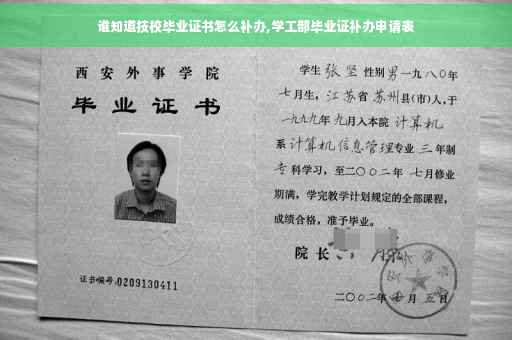 谁知道技校毕业证书怎么补办,学工部毕业证补办申请表
西安外事学院
毕业证书
证书编号:0209130411
学生 张坚 性别男一九八〇年
七月生，江苏省苏州县(市)人,于
一九九九年九月入本院 计算机
系计算机信息管理专业 三 年制
专科学习，至二〇〇二年 七月修业
期满，学完教学计划规定的全部课程，
成绩合格，准予毕业。
院长
二〇〇二年 月 五日